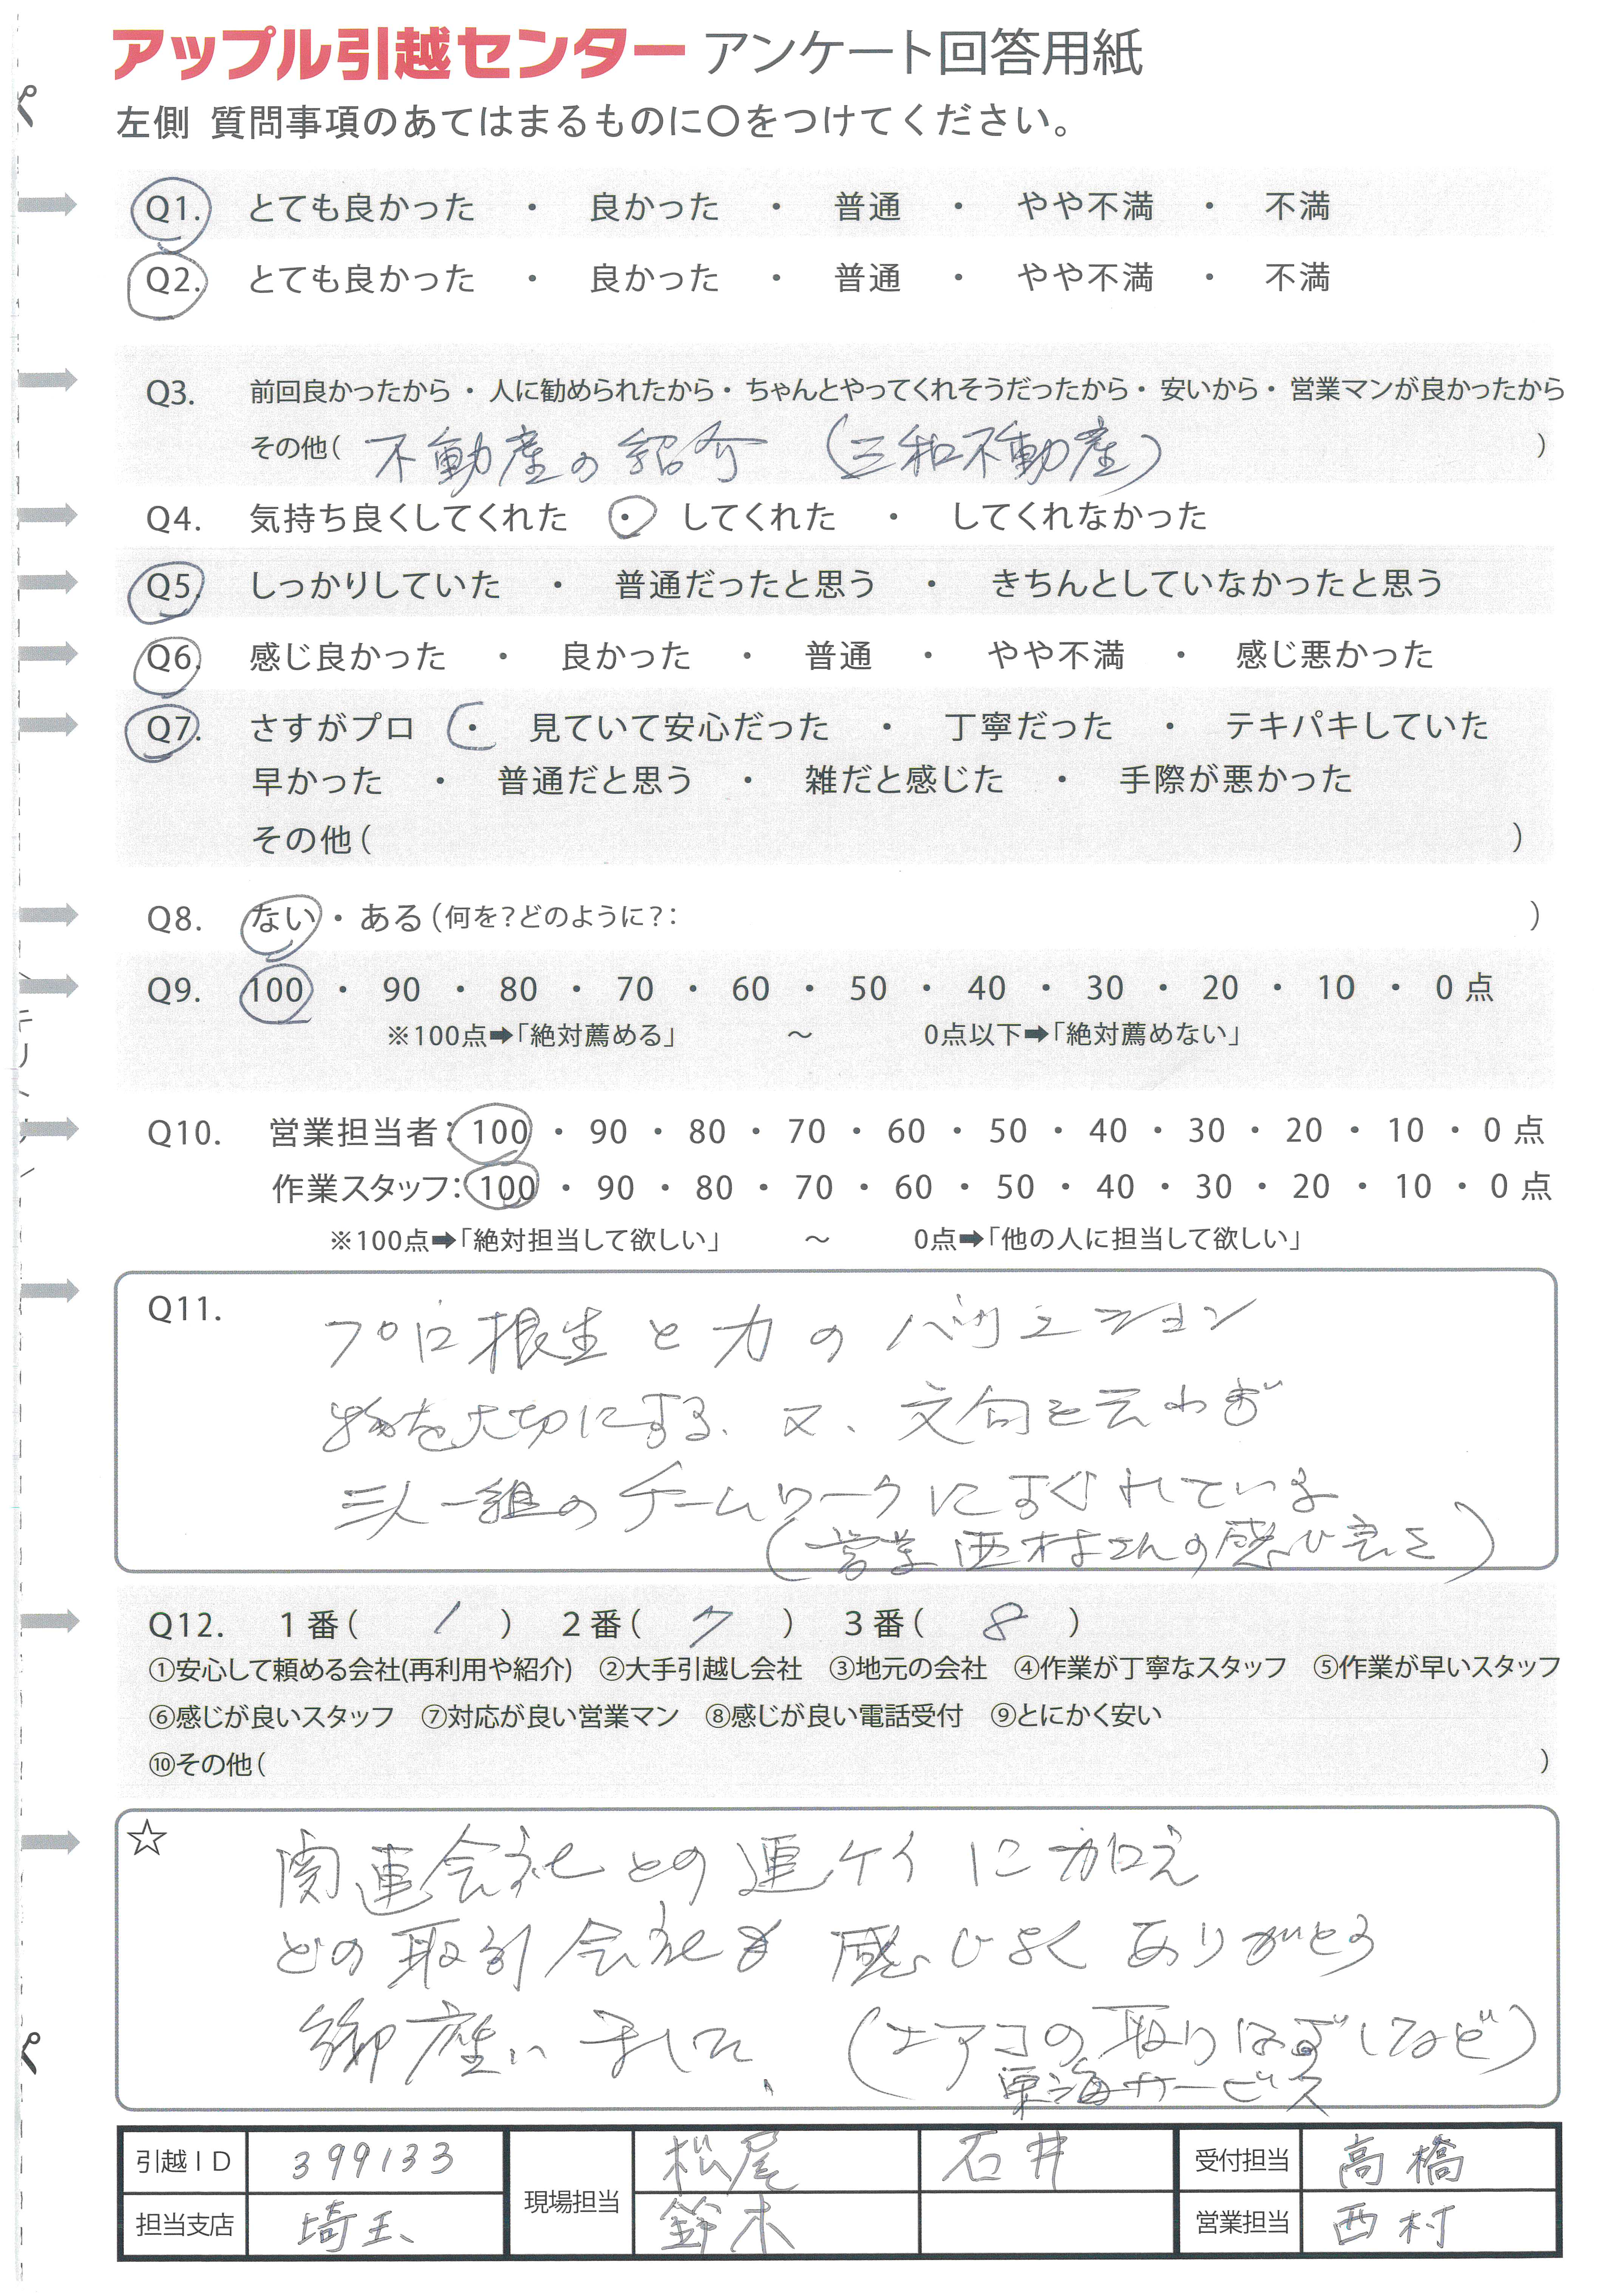 アップル引越センター アンケート回答用紙
左側 質問事項のあてはまるものに〇をつけてください。
Q1. とても良かった ・ 良かった ・ 普通 ・ やや不満 ・ 不満
Q2. とても良かった ・ 良かった ・ 普通 ・ やや不満 ・ 不満
Q3. 前回良かったから・人に勧められたから・ちゃんとやってくれそうだったから・安いから・営業マンが良かったから
その他( 不動産の紹介 (三和不動産) )
Q4. 気持ち良くしてくれた ・ してくれた ・ してくれなかった
Q5. しっかりしていた ・ 普通だったと思う ・ きちんとしていなかったと思う
Q6. 感じ良かった ・ 良かった ・ 普通 ・ やや不満 ・ 感じ悪かった
Q7. さすがプロ ・ 見ていて安心だった ・ 丁寧だった ・ テキパキしていた
早かった ・ 普通だと思う ・ 雑だと感じた ・ 手際が悪かった
その他( )
Q8. ない・ある(何を?どのように?: )
Q9. 100 ・ 90 ・ 80 ・ 70 ・ 60 ・ 50 ・ 40 ・ 30 ・ 20 ・ 10 ・ 0 点
※100点➡「絶対薦める」 ～ 0点以下➡「絶対薦めない」
Q10. 営業担当者: 100 ・ 90 ・ 80 ・ 70 ・ 60 ・ 50 ・ 40 ・ 30 ・ 20 ・ 10 ・ 0 点
作業スタッフ: 100 ・ 90 ・ 80 ・ 70 ・ 60 ・ 50 ・ 40 ・ 30 ・ 20 ・ 10 ・ 0 点
※100点➡「絶対担当して欲しい」 ～ 0点➡「他の人に担当して欲しい」
Q11. プロ根生と力のバリエーション
物を大切にする、又、文句を云わず
三人一組のチームワークにすぐれている
(営業 西村さんの感じ良さ)
Q12. 1番( 1 ) 2番( 7 ) 3番( 8 )
①安心して頼める会社(再利用や紹介) ②大手引越し会社 ③地元の会社 ④作業が丁寧なスタッフ ⑤作業が早いスタッフ
⑥感じが良いスタッフ ⑦対応が良い営業マン ⑧感じが良い電話受付 ⑨とにかく安い
⑩その他( )
☆ 関連会社との連ケイに加え
どの取引会社も感じよくありがとう
御座いました、(エアコの取りはずしなど)
東海サービス
引越ID 399133 現場担当 松尾 石井 受付担当 高橋
担当支店 埼玉 鈴木 営業担当 西村